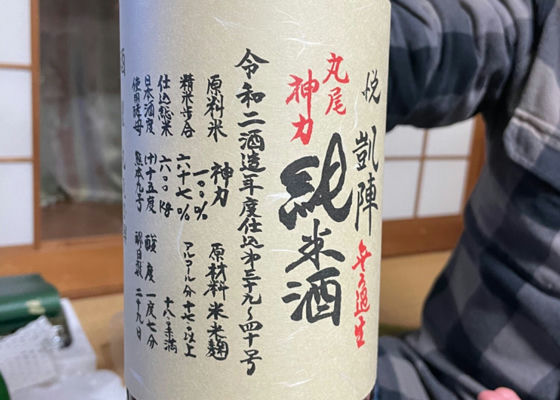 悦 凱陣 無過生
丸尾 神力 純米酒
令和二酒造年度仕込第三十九〜四十号
原料米 神力 一〇〇% 原材料 米 米麹
精米歩合 六十七% アルコール分 十七以上
十八未満
仕込総米 六〇〇kg
日本酒度 (+)十五度 酸度 一度七分
使用酵母 熊本九号 醪日数 二十九日
酒